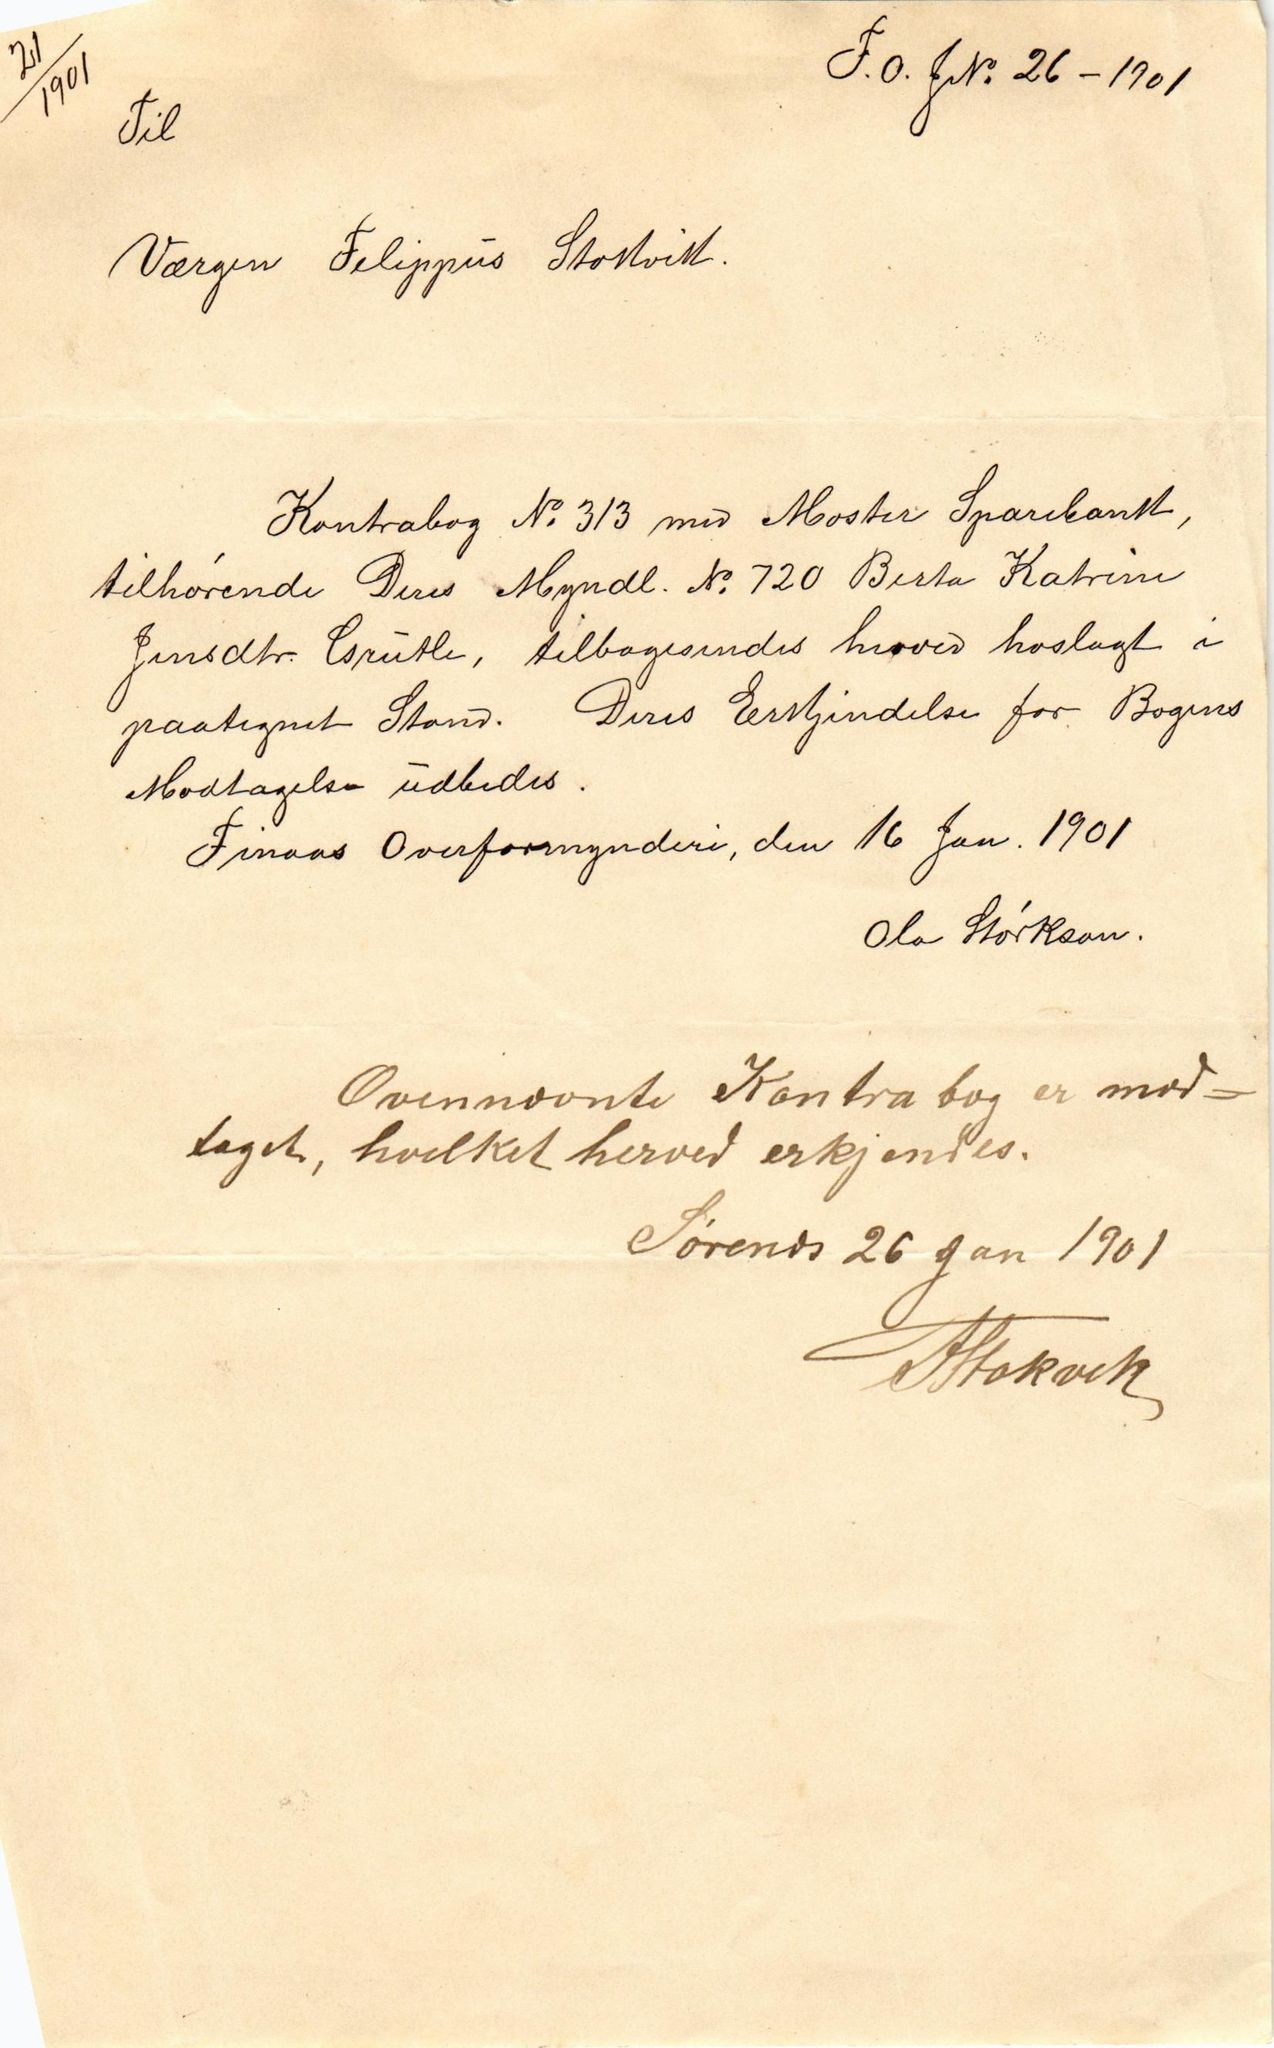 21/1901
F.O. JNo. 26 – 1901
Til
Værgen Felippus Stokvik.
Kontrabog No. 313 med Moster Sparebank,
tilhørende Deres Myndl. No. 720 Berta Katrine
Jensdtr. Grutle, tilbagesendes herved hoslagt i
paategnet Stand. Deres Erkjendelse for Bogens
Modtagelse udbedes.
Finaas Overformynderi, den 16 Jan. 1901
Ola Størkson.
Ovennævnte Kontrabog er mod=
taget, hvilket herved erkjendes.
26 Jan 1901
Stokvik